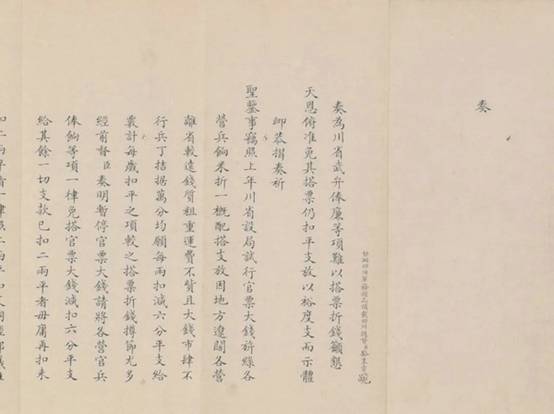 奏
督辦四川軍務頭品頂戴四川總督臣駱秉章跪
奏為川省武弁俸廉等項難以搭票折錢籲懇
天恩俯准免其搭票仍扣平支放以裕度支而示體
卹恭摺奏祈
聖鑒事竊照上年川省設局試行官票大錢於綠各
營兵餉米折一概配搭支放因地方遼闊各營
離省較遠錢質粗重運費不貲且大錢市肆不
行兵丁拮据萬分均願每兩扣減六分平支給
覈計每歲扣平之項較之搭票折錢撙節尤多
經前督臣奏明暫停官票大錢請將各營官兵
俸餉等項一律免搭官票大錢減扣六分平支
給其餘一切支款已扣二兩平者毋庸再扣未